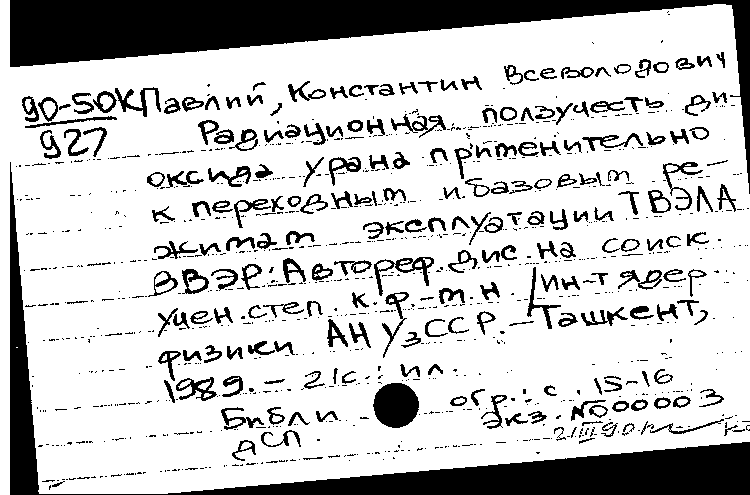 90-50К Павлий, Константин Всеволодович
927 Радиационная ползучесть ди-
оксида урана применительно
к переходным и базовым ре-
жимам эксплуатации ТВЭЛА
ВВЭР: Автореф. дис. на соиск.
учен. степ. к.ф.-м.н. / Ин-т ядер.
физики АН УзССР. - Ташкент,
1989. - 21с.: ил.
Библиогр.: с. 15-16
ДСП. Экз. №00003
21III90